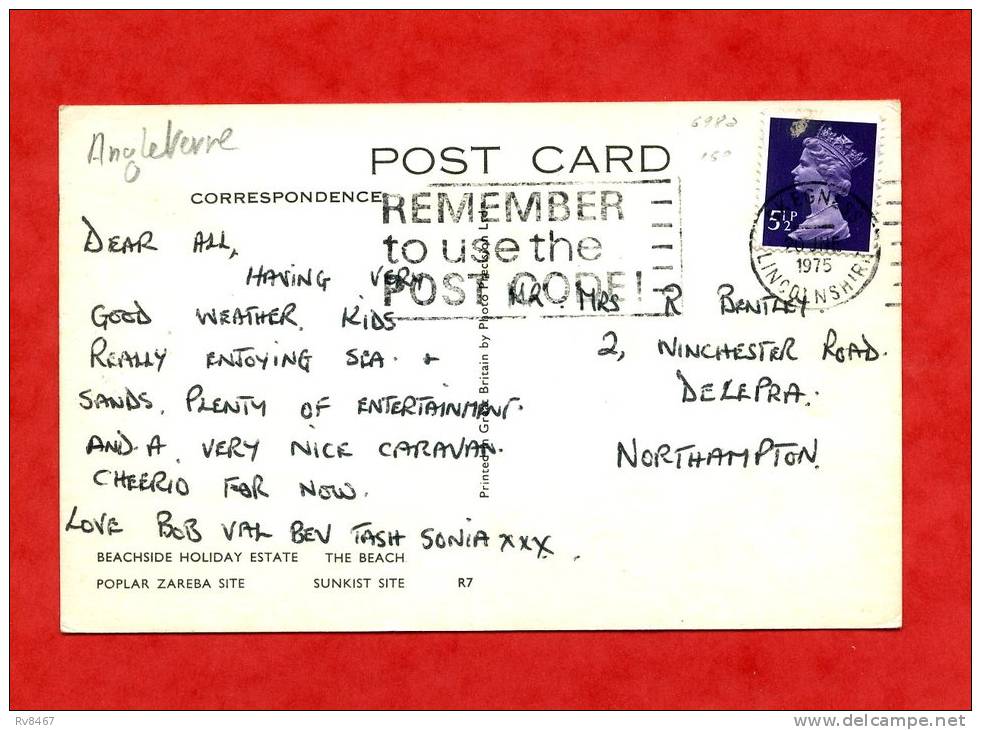 Angleterre
6982
150
POST CARD
CORRESPONDENCE
REMEMBER
to use the
POST CODE!
5½P
SKEGNESS
20 JNE
1975
LINCOLNSHIRE
DEAR ALL,
HAVING VERY
GOOD WEATHER. KIDS
REALLY ENJOYING SEA. +
SANDS. PLENTY OF ENTERTAINMENT.
AND.A. VERY NICE CARAVAN.
CHEERIO FOR NOW.
LOVE BOB VAL BEV TASH SONIA xxx.
MR. MRS R BENTLEY.
2, WINCHESTER ROAD.
DELEPRA.
NORTHAMPTON.
Printed in Great Britain by Photo Precision Ltd.
BEACHSIDE HOLIDAY ESTATE THE BEACH
POPLAR ZAREBA SITE SUNKIST SITE R7
Rv8467
www.delcampe.net